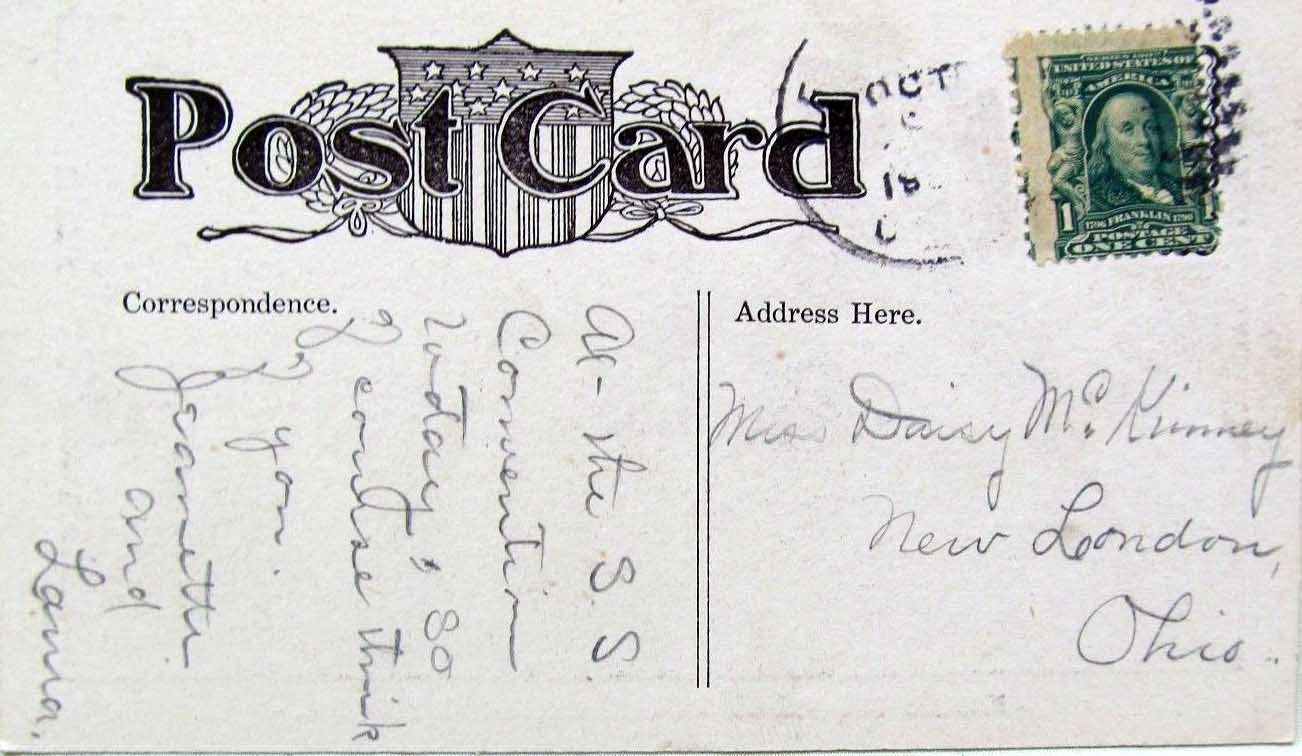 Post Card
OCT
UNITED STATES OF
AMERICA
1
1706 FRANKLIN 1790
POSTAGE
ONE CENT
Correspondence.
Address Here.
At the S. S.
Convention
today, so
I course think
of you.
Jeanette
and
Miss Daisy McKinney
New London,
Ohio.